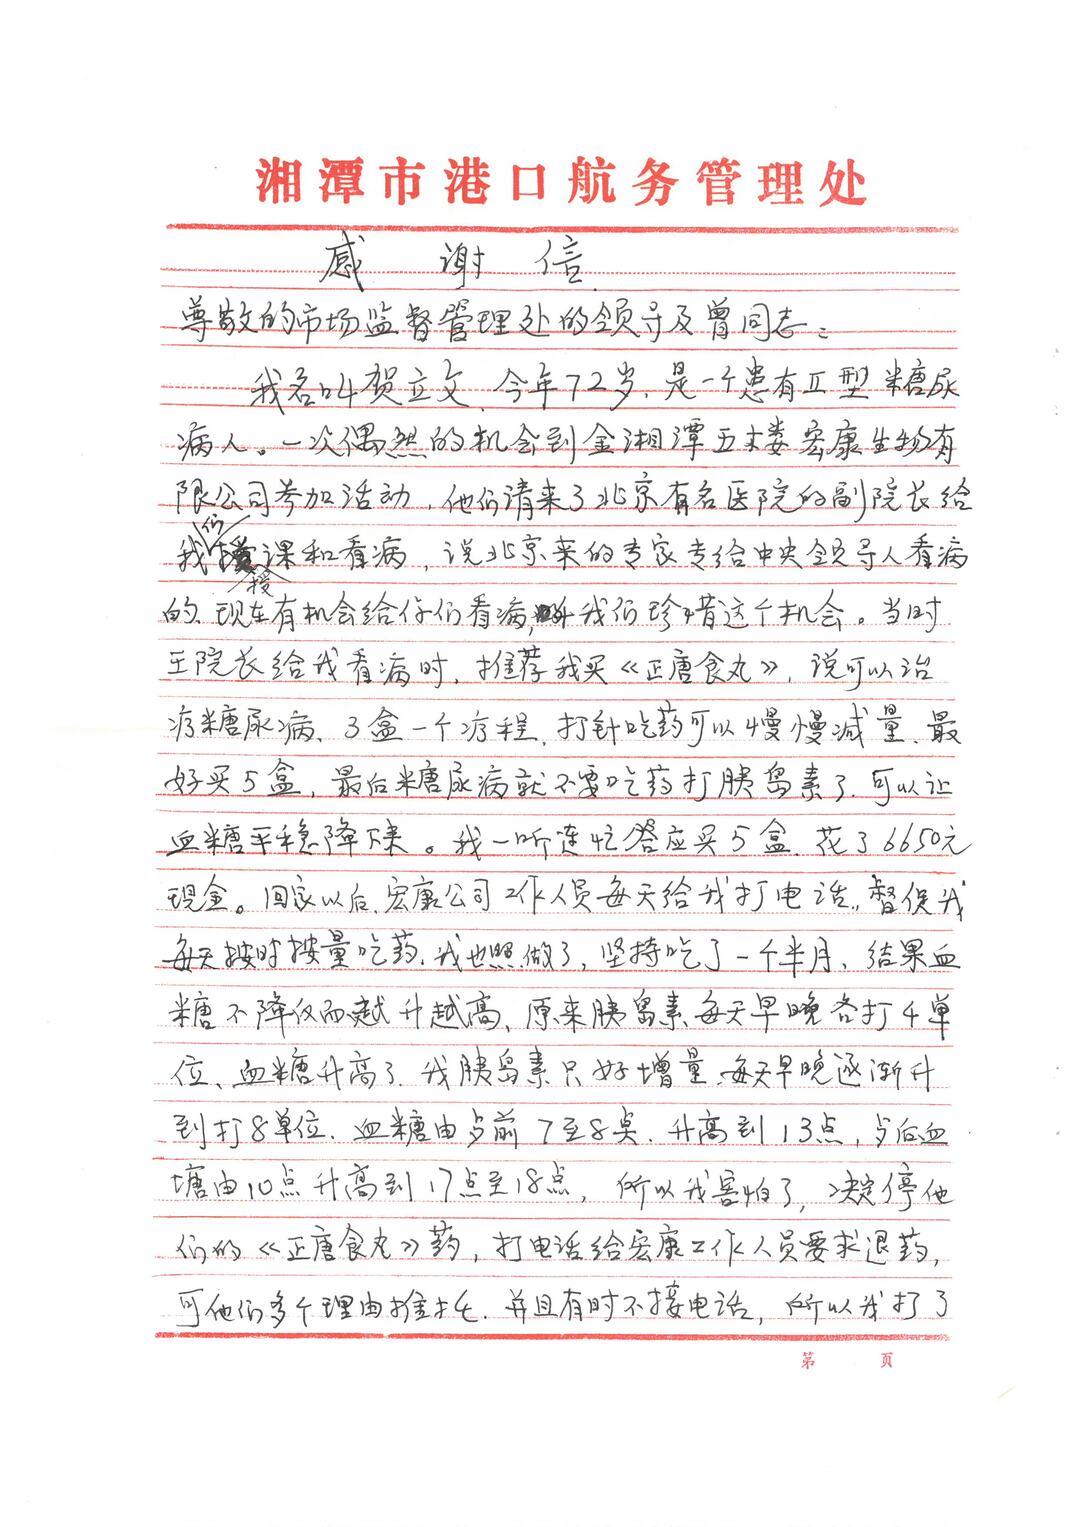 湘潭市港口航务管理处
感谢信
尊敬的市场监督管理处的领导及曾同志：
我名叫贺立文，今年72岁，是一个患有II型糖尿
病人。一次偶然的机会到金湘潭五楼宏康生物有
限公司参加活动，他们请来了北京有名医院的副院长给
我们授课和看病，说北京来的专家专给中央领导人看病
的、现在有机会给你们看病，叫我们珍惜这个机会。当时
王院长给我看病时，推荐我买《正唐食丸》，说可以治
疗糖尿病、3盒一个疗程，打针吃药可以慢慢减量、最
好买5盒，最后糖尿病就不要吃药打胰岛素了，可以让
血糖平稳降下来。我一听连忙答应买5盒，花了6650元
现金。回家以后，宏康公司工作人员每天给我打电话，督促我
每天按时按量吃药，我也照做了，坚持吃了一个半月、结果血
糖不降反而越升越高，原来胰岛素每天早晚各打4单
位、血糖升高了，我胰岛素只好增量，每天早晚逐渐升
到打8单位，血糖由歺前7至8点，升高到13点，歺后血
塘由10点升高到17点至18点，所以我害怕了，决定停他
们的《正唐食丸》药，打电话给宏康工作人员要求退药，
可他们多个理由推托，并且有时不接电话，所以我打了
第 页